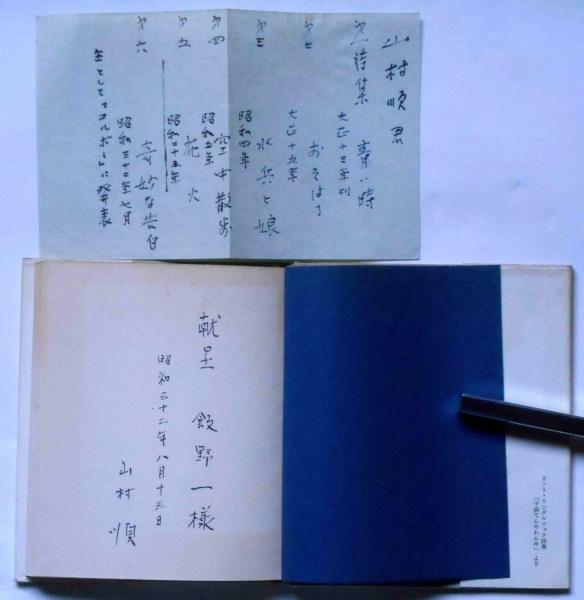 山村順君
第一詩集 青い時
大正十三年刊
第二 おそはる
大正十五年
第三 水兵と娘
昭和四年
第四 空中散歩
昭和五年
第五 花火
昭和二十五年
第六 奇妙な告白
昭和三十二年七月
主として に発表
献呈 飯野一様
昭和三十二年八月十三日
山村順
カット・リンゲルナッツ詩集
より